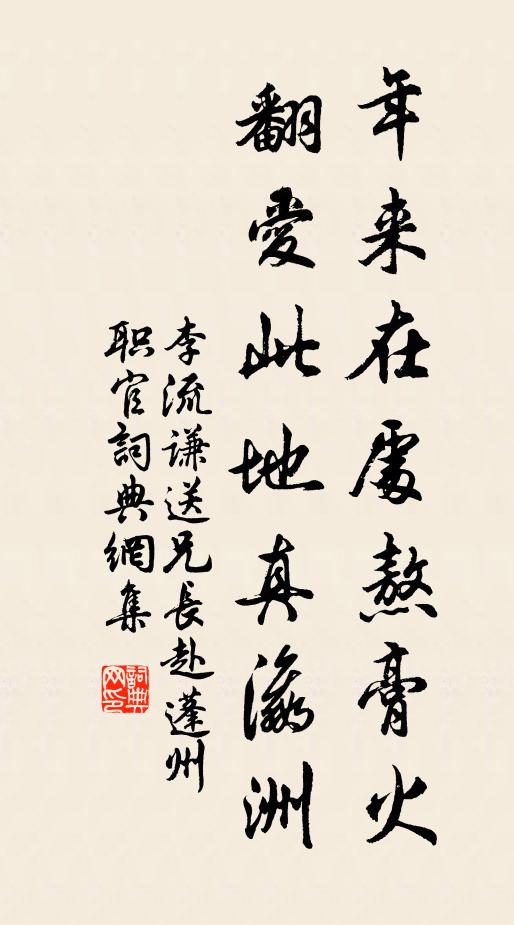 年来在處熬膏火
翻愛此地真瀛洲
李流谦送兄長赴蓬州
职官詞典網集
詞典网印